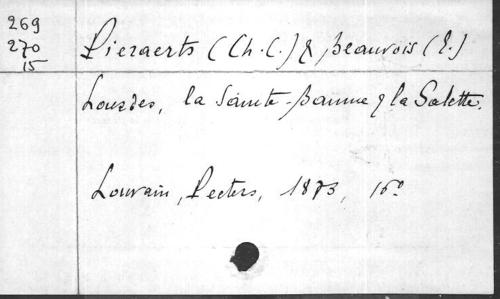 269
270
15
Pieraerts (Ch. C.) & Beauvois (E.)
Lourdes, la Sainte-Baume & la Salette.
Louvain, Peeters, 1873, 16º